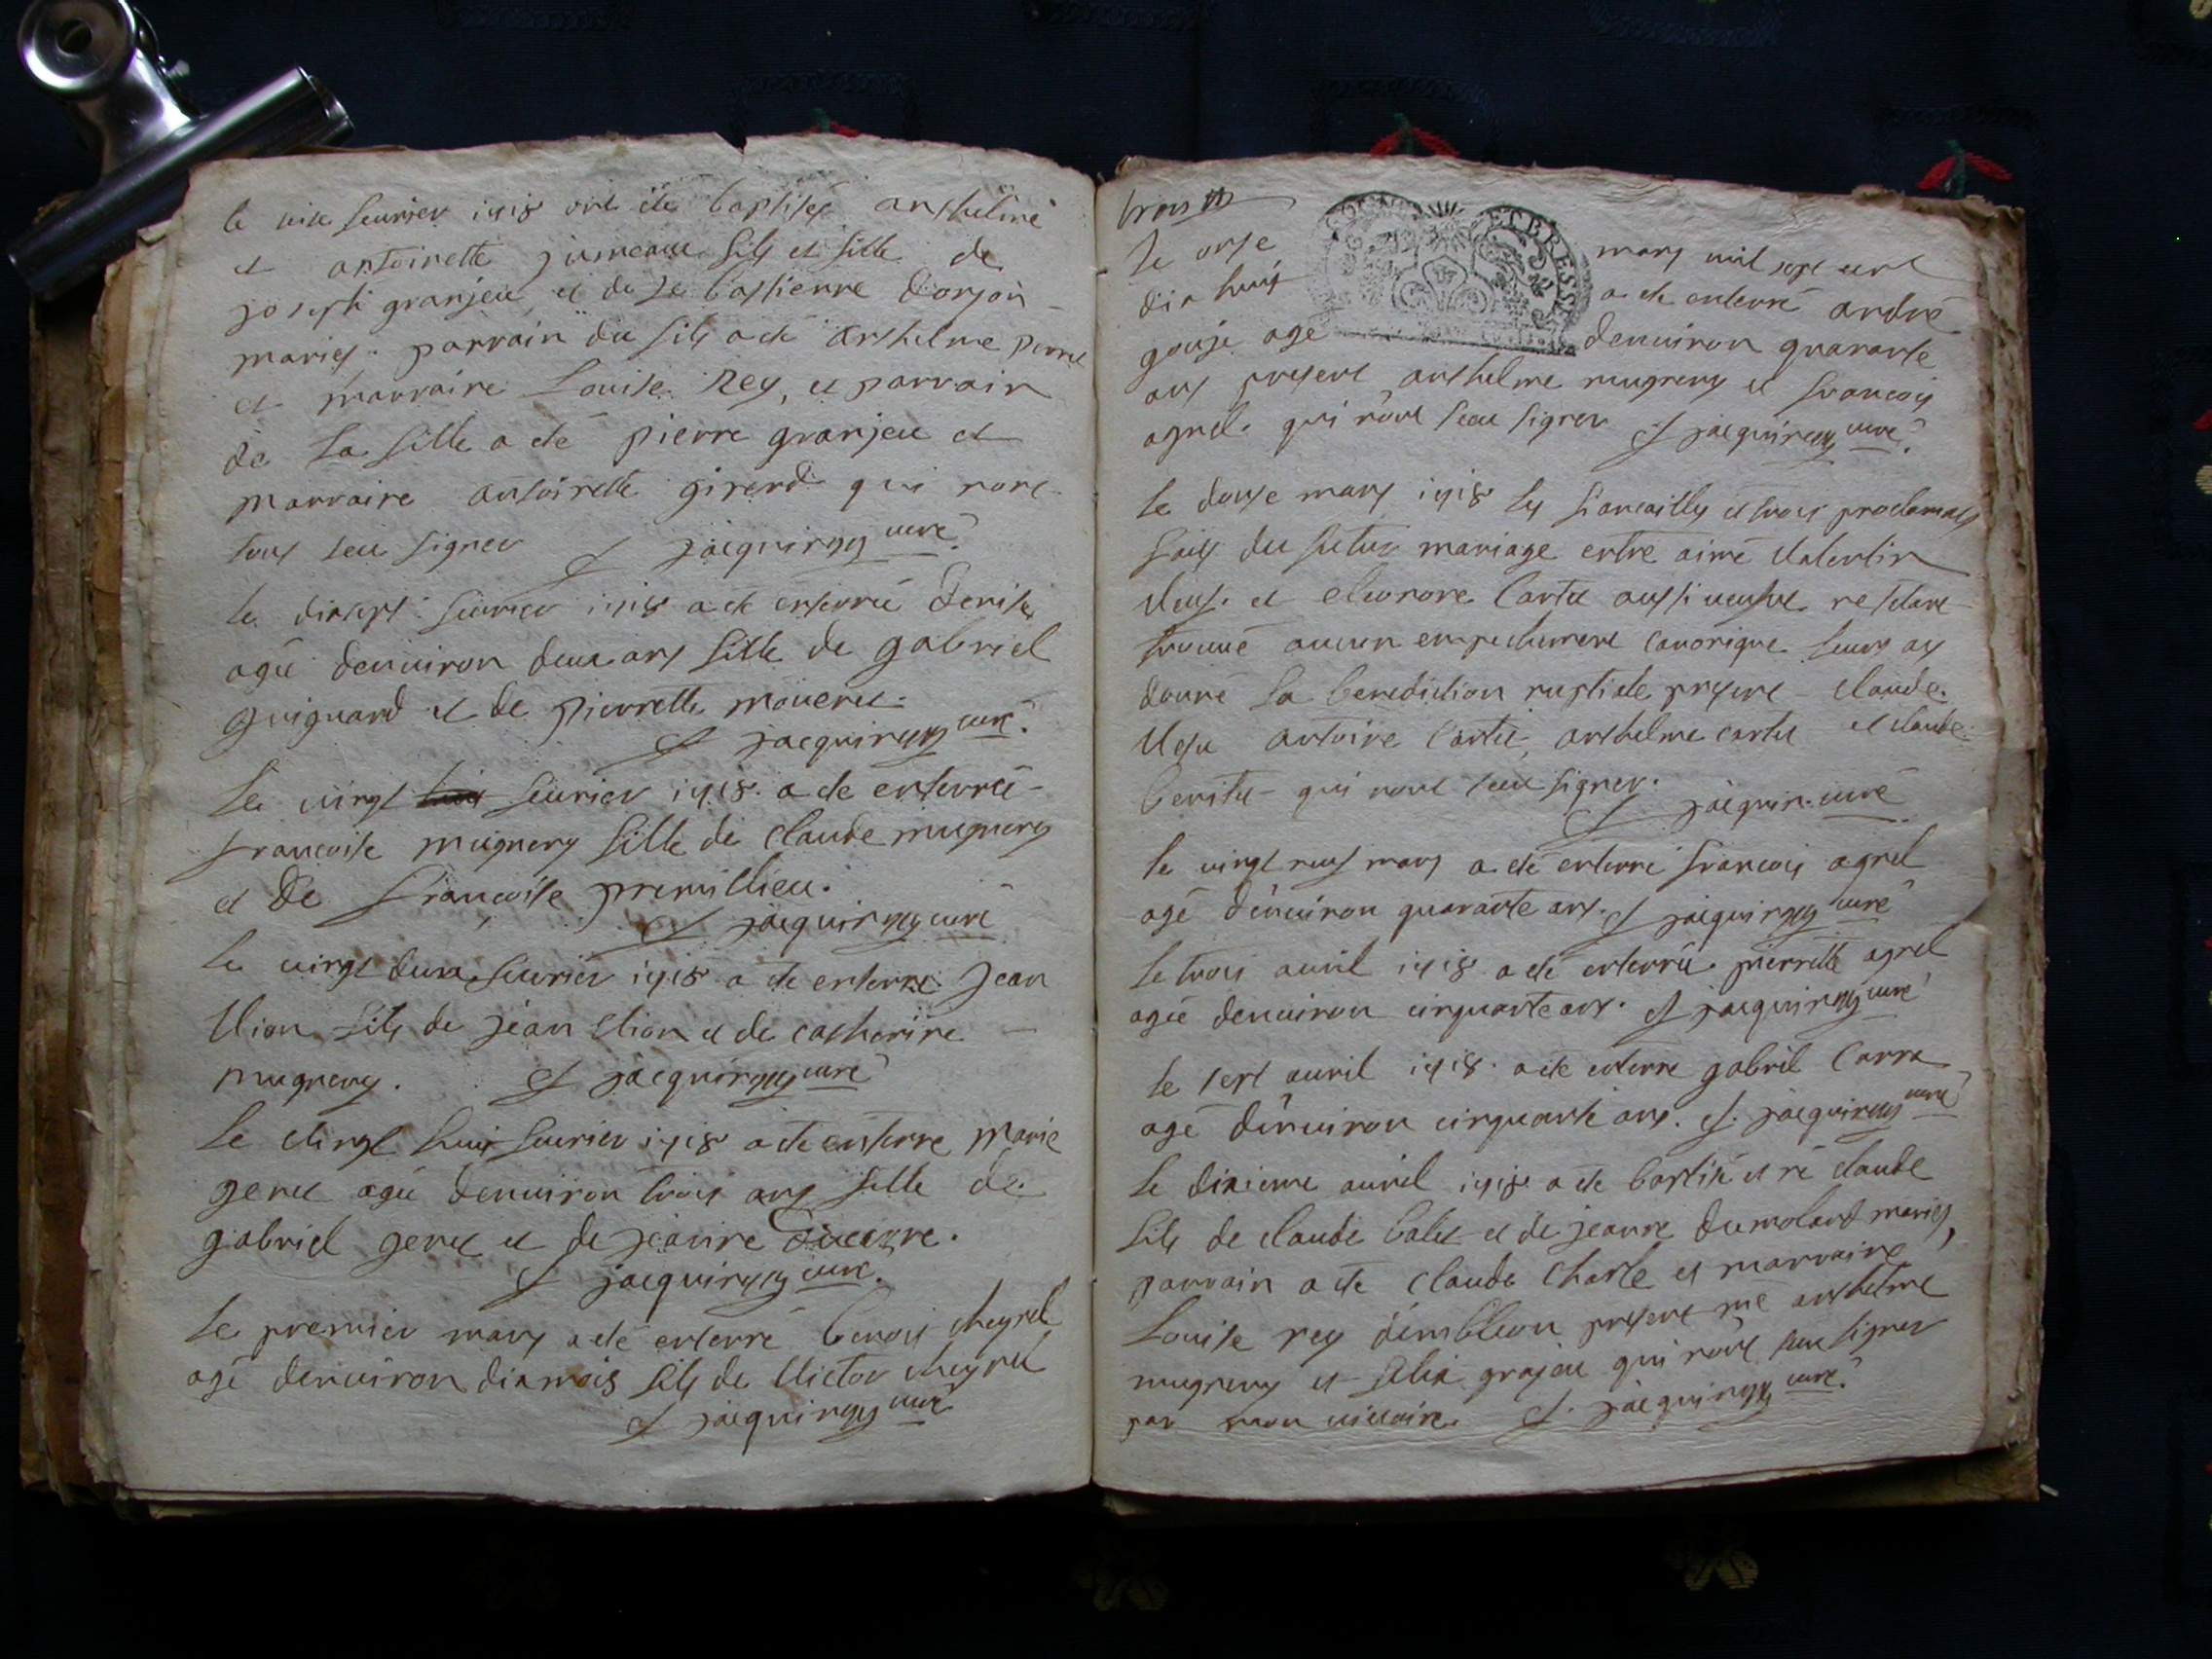 le feurier 1718 ont ete baptises anthelme
et antoinette jumeaux fils et fille de
joseph granjeu et de se bastienne
maries. parrain du fils a eté anthelme
et marraine Louise Rey, et parrain
de La fille a eté pierre granjeu et
marraine antoinette girerd qui nont
tous seu signer J jacquin curé
le dixsept feurier 1718 a ete enterrée denise
agée denuiron deux ans fille de gabriel
guignard et de pierrette
J jacquin curé.
Le vingt feurier 1718. a ete enterrée
francoise mugnery fille de claude mugnery
et De francoise premillieu.
J jacquin curé
Le vingt deux feurier 1718 a ete enterre Jean
Vion fils de jean Vion et de catherine
mugnery. J jacquin curé
Le Vingt huit feurier 1718 a ete enterre Marie
genet agée denuiron trois ans fille de
gabriel genet et de jeanne
J jacquin curé.
Le premier mars a eté enterré benoit
agé denuiron dix mois fils de Victor
J jacquin curé
trois
Le onse mars mil sept cent
dix huit a ete enterré andré
gouje agé denuiron quarante
ans present anthelme mugnery et francois
agnel qui n'ont seeu signer J jacquin curé
Le douse mars 1718 les fiancailles et trois proclamats
faits du futur mariage entre aimé Valentin
Veuf et eleonore Cartet aussi veufve ne setant
trouué aucun empechement canonique leurs ay
donné La benediction nuptiale present claude
antoine Cartet, anthelme cartet et claude
qui nont seeu signer.
J jacquin curé
le vingt neuf mars a eté enterré francois agnel
agé d'enuiron quarante ans. J jacquin curé
Le trois auril 1718 a eté enterrée pierrette agnel
agée denuiron cinquante ans. J jacquin curé
Le sept auril 1718. a eté enterré gabriel Carra
agé d'enuiron cinquante ans. J. jacquin curé
Le dixieme auril 1718 a ete baptisé et né claude
fils de claude balet et de jeanne Dumolard maries,
parrain a ete claude charle et marraine
Louise rey dembleon present me anthelme
mugnery et felix grajeu qui n'ont seeu signer
par mon vicaire. J. jacquin curé.